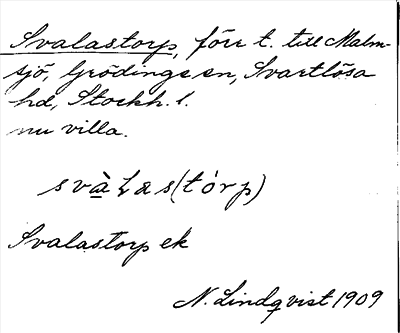 Svalastorp, förr t. till Malm-
sjö, Grödinge sn, Svartlösa
hd, Stockh. l.
nu villa.
svàlas(tórp)
Svalastorp ek
N. Lindqvist 1909